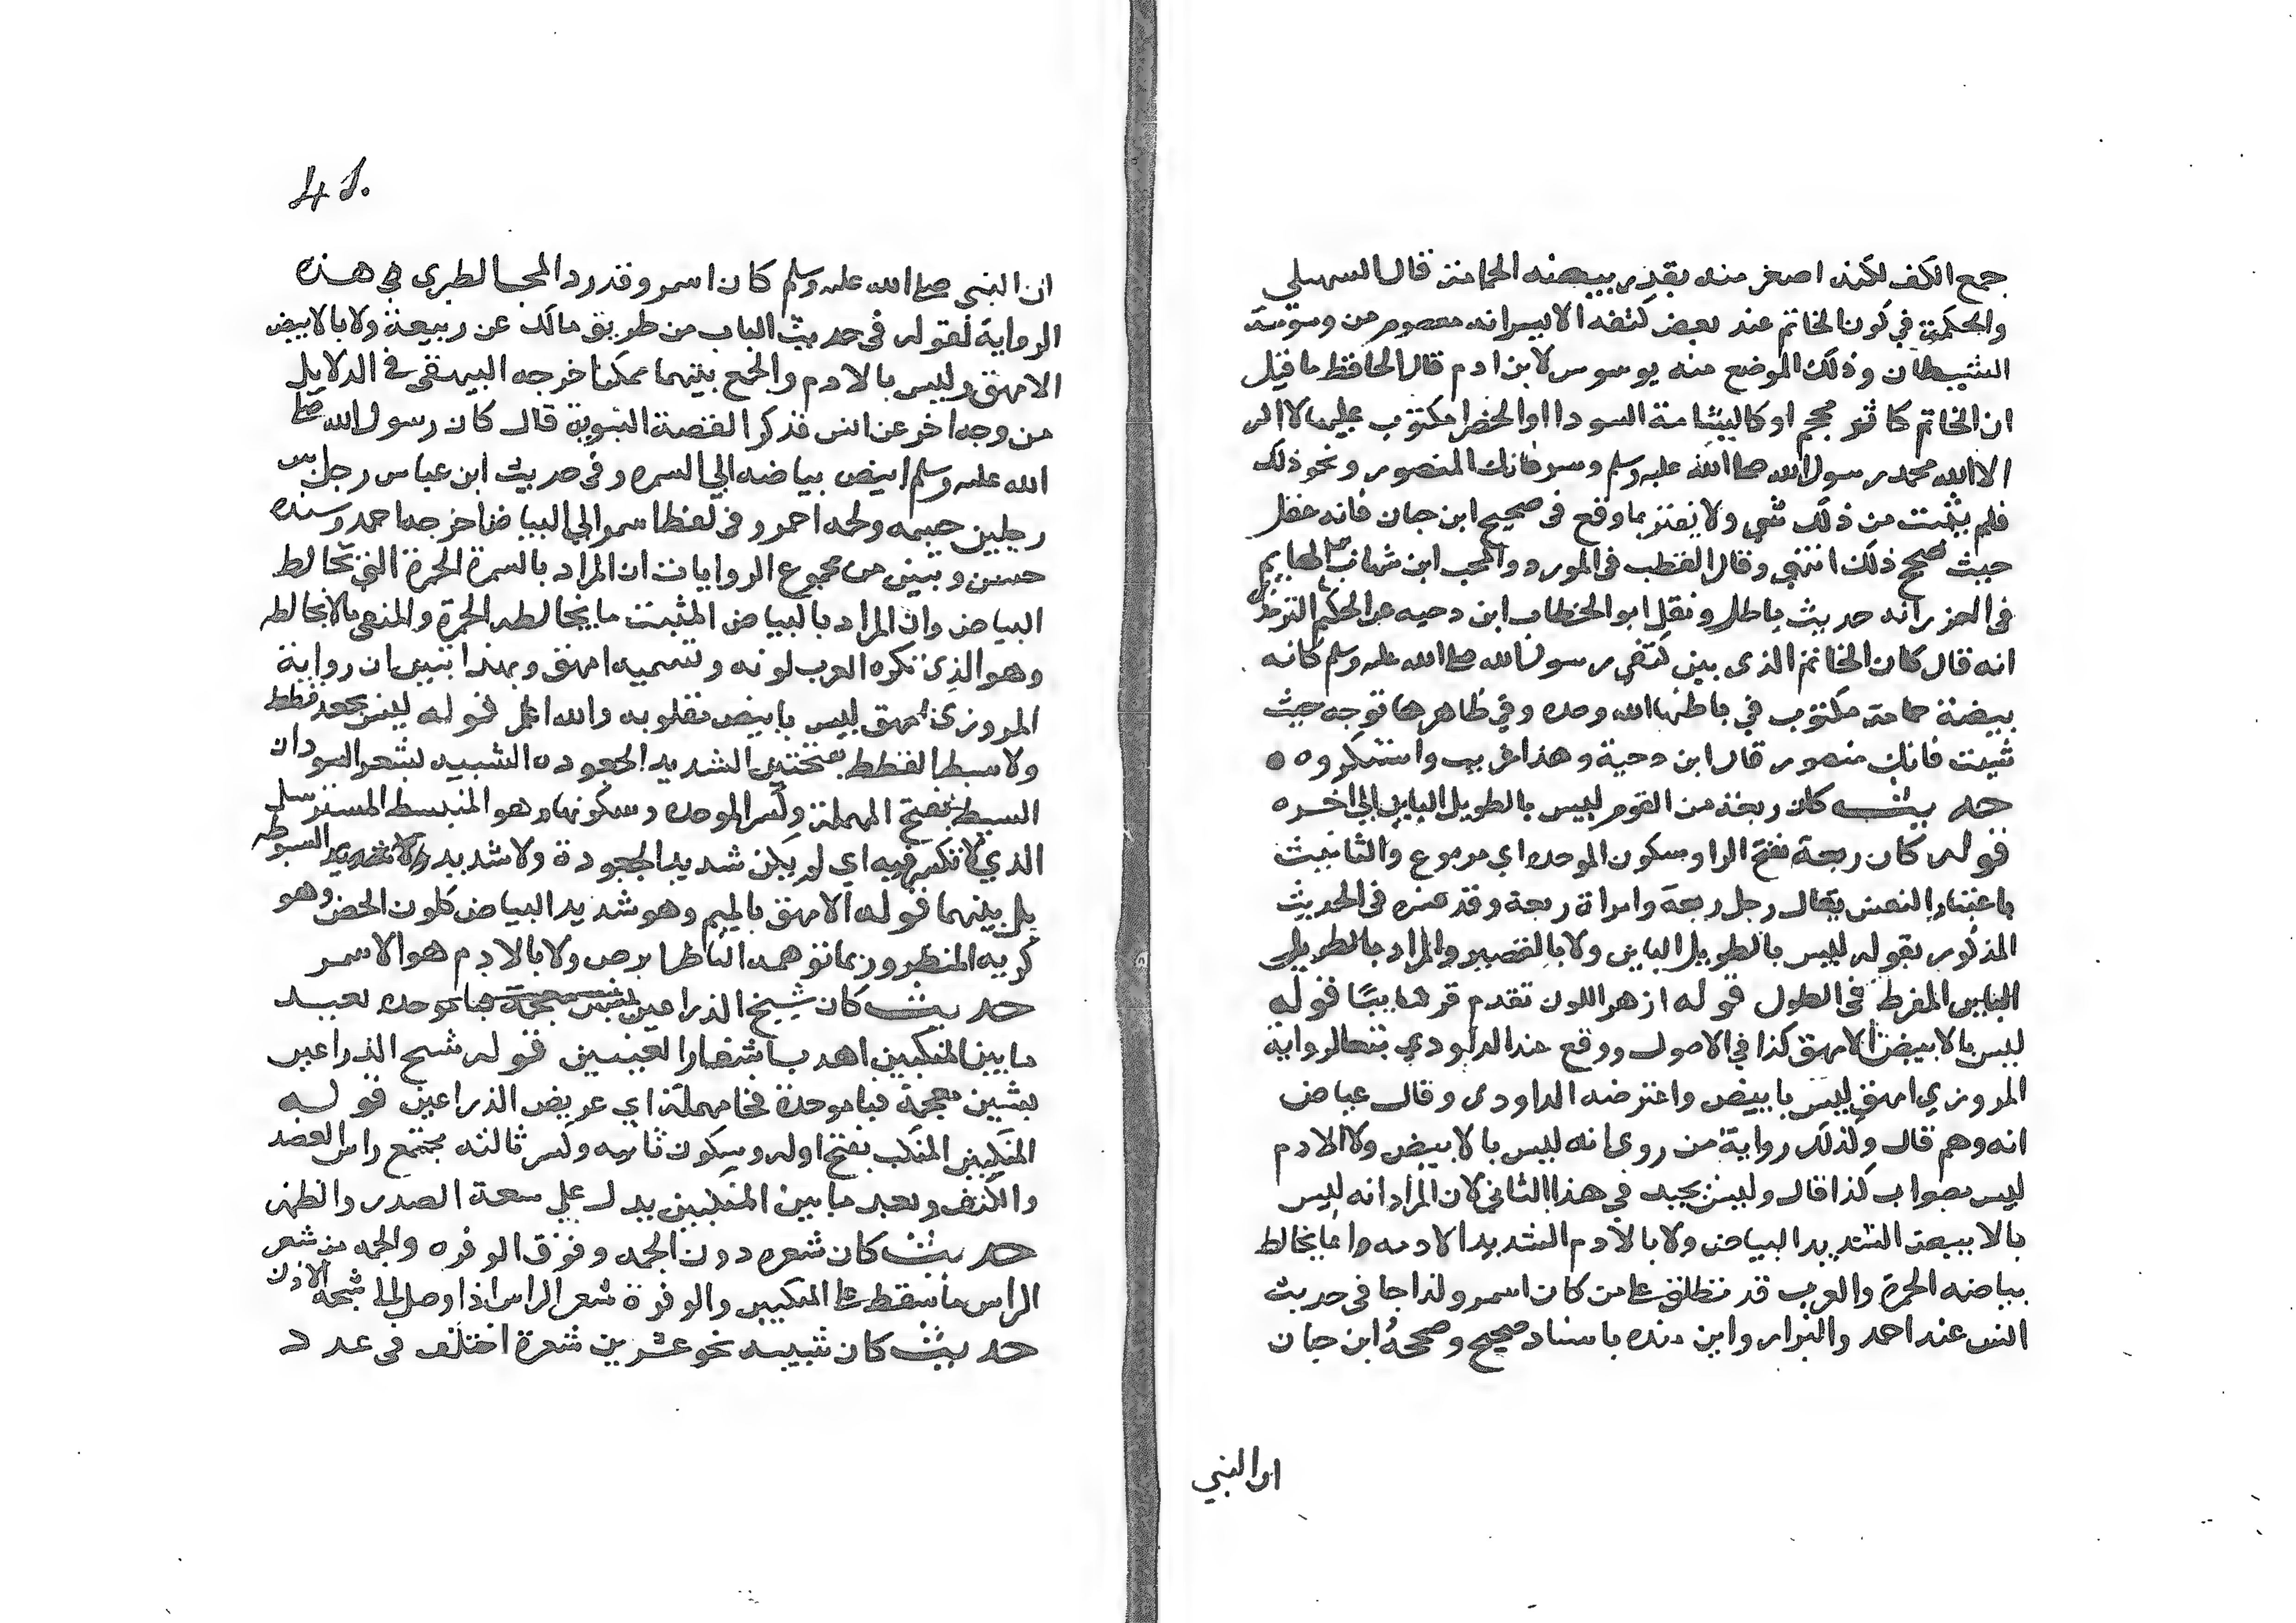 جمع الكف لكنه اصغر منه بقدر بيضة الحمامة قال السهيلي
والحكمة في كون الخاتم عند بعض كتفه الايسر انه معصوم من وسوسة
الشيطان وذلك الموضع منه يوسوس لابن ادم قال الحافظ ما قيل
ان الخاتم كاثر محجم او كالشامة السودا اوالخضرا مكتوب عليها لا اله
الا الله محمد رسول الله صلى الله عليه وسلم وسر فانك المنصور ونحو ذلك
فلم يثبت من ذلك شي ولا يغتر بما وقع في صحيح ابن حبان فانه غفل
حيث صحح ذلك انتهي وقال القطب في المورد والمحب ابن شهاب الهايم
في الغرر انه حديث باطل ونقل ابو الخطاب ابن دحيه عن الحكيم الترمذي
انه قال كان الخاتم الذي بين كتفي رسول الله صلى الله عليه وسلم كانه
بيضة حمامة مكتوب في باطنها الله وحده وفي ظاهرها توجه حيث
شيت فانك منصور قال ابن دحية وهذا غريب واستنكروه ه
حديث كان ربعة من القوم ليس بالطويل الباين الي اخره
قوله كان ربعة بفتح الرا وسكون الموحده اي مربوع والتانيث
باعتبار النفس يقال رجل ربعة وامراة ربعة وقد فسره في الحديث
المذكور بقوله ليس بالطويل الباين ولا بالقصير والمراد بالطويل
الباين المفرط في الطول قوله ازهر اللون تقدم قريبا قوله
ليس بالابيض الامهق كذا في الاصول ووقع عند الداودي تبعا لرواية
المروزي امهق ليس بابيض واعترضه الداودي وقال عياض
انه وهم قال وكذلك رواية من روي انه ليس بالابيض ولا الادم
ليس بصواب كذا قال وليس بجيد في هذا الثاني لان المراد انه ليس
بالابيض الشديد البياض ولا بالادم الشديد الادمه وانما يخالط
بياضه الحمرة والعرب قد تطلق على من كان اسمر ولذا جا في حديث
انس عند احمد والبزار وابن منده باسناد صحيح وصححه ابن حبان
ان النبي
41.
ان النبي صلى الله عليه وسلم كان اسمر وقد رد المحب الطبري في هذه
الرواية لقوله في حديث الباب من طريق مالك عن ربيعة ولا بالابيض
الامهق وليس بالادم والجمع بينهما ممكن اخرجه البيهقي في الدلايل
من وجه اخر عن انس فذكر القصة النبوية قال كان رسول الله صلى
الله عليه وسلم ابيض بياضه الي السمره وفي حديث ابن عباس رجل بين
رجلين جسمه ولحمه احمر وفي لفظ اسمر الي البياض اخرجه احمد وسنده
حسن وتبين من مجموع الروايات ان المراد بالسمرة الحمرة التي تخالط
البياض وان المراد بالبياض المثبت ما يخالطه الحمرة والمنفي ما لا يخالطه
وهو الذي تكره العرب لونه وتسميه امهق وبهذا تبين ان رواية
المروزي امهق ليس بابيض مقلوبه والله اعلم قوله ليس بجعد قطط
ولا سبط القطط بفتحتين الشديد الجعوده الشبيه لشعر السودان
السبط بفتح المهملة وكسر الموحده وسكونها وهو المنبسط المسترسل
الذي لا تكسر فيه اي لم يكن شديد الجعودة ولا شديد السبوطه
بل بينهما قوله الامهق بالميم وهو شديد البياض كلون الجص وهو
كريه المنظر وربما توهمه الناظر ابرص ولا بالادم هو الاسمر
حديث كان شبح الذراعين بعيد
ما بين المنكبين اهدب اشفار العينين قوله شبح الذراعين
بشين معجمة فباموحدة فحا مهملة اي عريض الذراعين قوله
المنكبين المنكب بفتح اوله وسكون ثانيه وكسر ثالثه مجتمع راس العضد
والكتف وبعد ما بين المنكبين يدل علي سعة الصدر والظهر
حديث كان شعره دون الجمه وفوق الوفره والجمه من شعر
الراس ما سقط على المنكبين والوفرة شعر الراس اذا وصل الى شحمة الاذن
حديث كان شيبه نحو عشرين شعرة اختلف في عدد